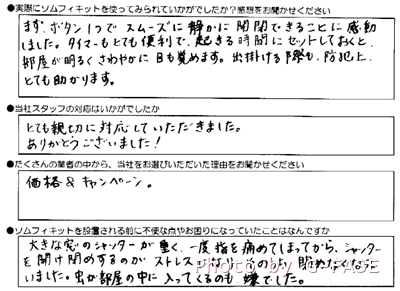 ●実際にソムフィキットを使ってみられていかがでしたか？感想をお聞かせください
まず、ボタン1つでスムーズに静かに開閉できることに感動
しました。タイマーもとても便利で、起きる時間にセットしておくと、
部屋が明るくさわやかに目も覚めます。出掛ける際も、防犯上、
とても助かります。
●当社スタッフの対応はいかがでしたか
とても親切に対応していただきました。
ありがとうございました！
●たくさんの業者の中から、当社をお選びいただいた理由をお聞かせください
価格&キャンペーン。
●ソムフィキットを設置される前に不便な点やお困りになっていたことはなんですか
大きな窓のシャッターが重く、一度指を痛めてしまってから、シャッター
を開け閉めするのがストレスになり
いました。虫が部屋の中に入ってくるのも嫌でした。